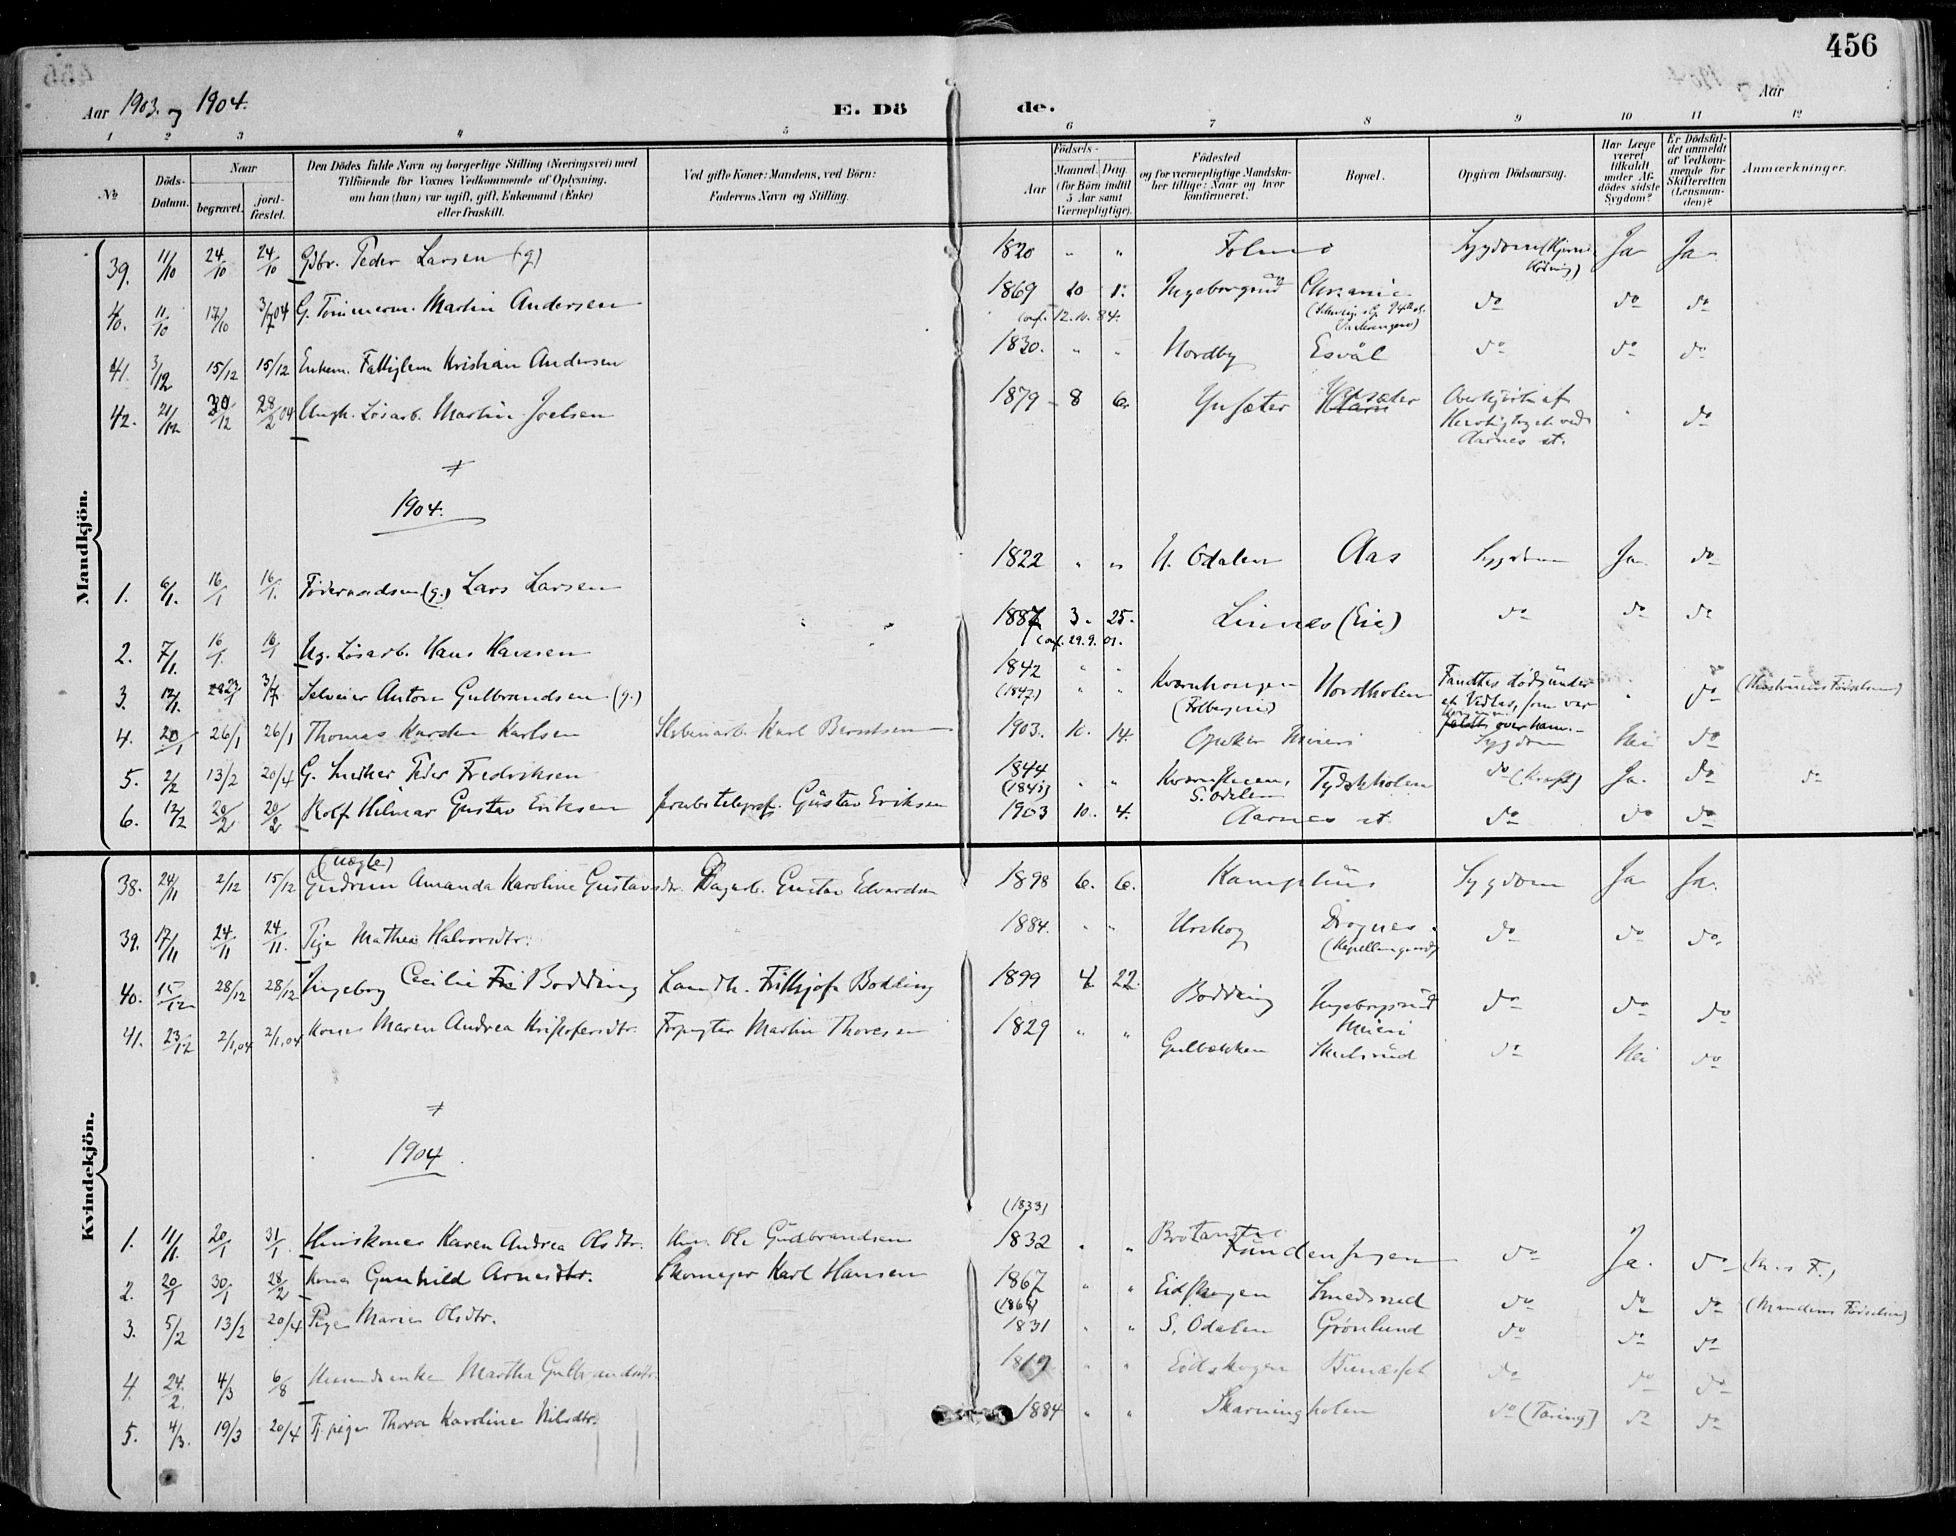 456
Aar 1903. og 1904.
E. Döde.
Aar
1 2 3 4 5 6 7 8 9 10 11 12
No
Döds-Datum.
Naar
begravet.
jord-fæstet.
Den Dödes fulde Navn og borgerlige Stilling (Næringsvei) med
Tilföiende for Voxnes Vedkommende af Oplysning,
om han (hun) var ugift, gift, Enkemand (Enke)
eller fraskilt.
Ved gifte Koner: Mandens, ved Börn:
Faderens Navn og Stilling.
Födsels-
Aar
Maaned. Dag
(for Börn indtil
5 Aar samt
Værnepligtige).
Födested
og for værnepligtige Mandska-
ber tillige: Naar og hvor
konfirmeret.
Bopæl.
Opgiven Dödsaarsag.
Har Læge
været
tilkaldt
under Af-
dödes sidste
Sygdom?
Er Dödsfal-
det anmeldt
af Vedkom-
mende for
Skifteretten
(Lensman-
den)?
Anmærkninger.
Mandkjön.
39. 11/10 24/10 24/10 Gdbr. Peder Larsen (g) 1820 " " Ja Ja
40. 11/10 17/10 3/7 04 G. Tømmerm. Martin Andersen 1869 10 1. Ingeborgrud do do do
conf. 12.10.84.
41. 3/12 15/12 15/12 Enkem. Fattiglem Kristian Andersen 1830. " " Nordby Esvål do do do
42. 21/12 30/12 28/2 04 Ungk. Løsarb. Martin Joelsen 1879 8 6. Ynsæter Overkjørt af
ved
Aarnes st. do
1904.
1. 6/1. 16/1 16/1. (g.) Lars Larsen 1822 " " N. Odalen Aas Sygdom Ja. do
2. 7/1. 16/1. 16/1 Ug. Løsarb. Hans Hansen 1887 3. 25. Linnes (Eie) do do do
conf. 29.9.01.
3. 12/1. 23/1 3/7. Selveier Anton Gulbrandsen (g.) 1842 " " Nordholen Fandtes død under
(1847) et Vedlas, som var
over ham. do
4. 20/1 26/1 26/1 Thomas Karsten Karlsen Karl Berntsen 1903. 10. 14. Sygdom Nei do
5. 2/2 13/2 20/4 G. Smeker Peder Fredriksen 1844 " " S. Odalen Tydskholen do (Kræft) Ja. do do
6. 12/2 20/2 20/2 Rolf Hilmar Gustav Eriksen Gustav Eriksen 1903 10. 4. Aarnes st do do do
Kvindekjön.
(uægte)
38. 24/11 2/12 15/12 Gudrun Amanda Karoline Gustavsdtr. Dagarb. Gustav Edvardsen 1898 6. 6. Kamphus Sygdom Ja Ja.
39. 17/11 24/11 24/11. Pige Mathea Halvorsdtr. 1884. " " Urskog Drognes do do do.
40. 15/12 28/12 28/12 Ingeborg Cecilie Bodding Landh. Frithjof Bodding 1899 4 22. Bodding Ingeborgrud
Meieri do do do
41. 23/12 2/1,04 2/1,04 Kone Maren Andrea Kristofersdtr. Forpagter Martin Thoresen 1829 " " Gulbækken Skulsrud do Nei do
1904
(1833)
1. 11/1. 20/1 31/1. Huuskone Karen Andrea Olsdtr. Hm. Ole Gudbrandsen 1832 " " Fundenhagen do Ja. do
2. 20/1 30/1 28/2 Kone Gunhild Arnesdtr. Skomager Karl Hansen 1867 " " Eidskogen Smedsrud do do do (Mandens Fødselsaar)
3. 5/2 13/2 20/4 Pige Marie Olsdtr. 1831 " " S. Odalen Grønlund do do do
4. 24/2. 4/3 6/8 Martha Gulbrandsdtr. 1819 " " Eidskogen do do do
5. 4/3. 19/3 20/4 Tj.pige Thora Karoline Nilsdtr. 1884 " " Skarningholen do (Tæring) do do